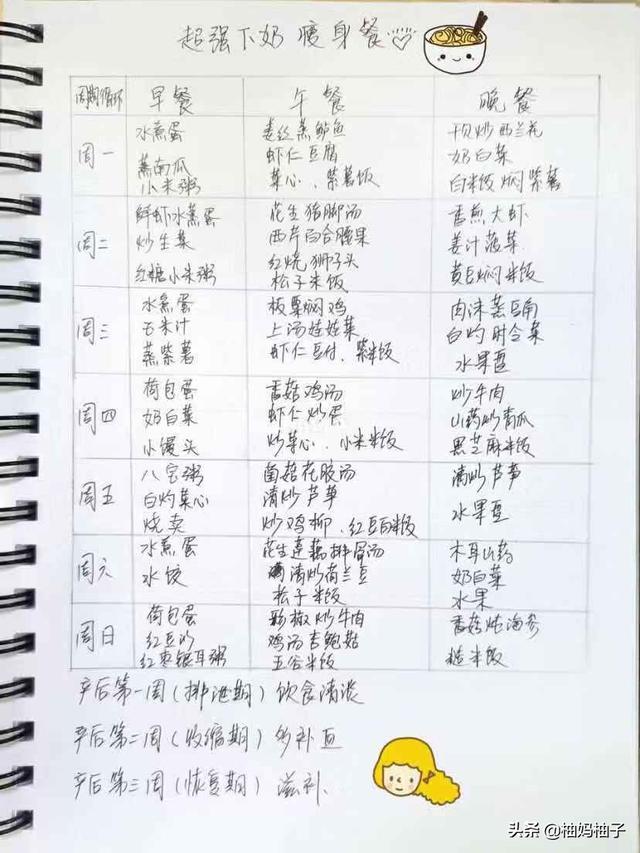 超强下奶瘦身餐
周期循环 早餐 午餐 晚餐
周一
水煮蛋
蒸南瓜
小米粥
姜丝蒸鲈鱼
虾仁豆腐
菜心、紫薯饭
干贝炒西兰花
奶白菜
白米饭焖紫薯
周二
鲜虾水蒸蛋
炒生菜
红糖小米粥
花生猪脚汤
西芹百合腰果
红烧狮子头
松子米饭
香煎大虾
姜汁菠菜
黄豆焖米饭
周三
水煮蛋
玉米汁
蒸紫薯
板栗焖鸡
上汤娃娃菜
虾仁豆付、紫米饭
肉沫蒸豆角
白灼时令菜
水果
周四
荷包蛋
奶白菜
小馒头
香菇鸡汤
虾仁炒蛋
炒菜心、小米米饭
炒牛肉
山药炒青瓜
黑芝麻米饭
周五
八宝粥
白灼菜心
烧卖
菌菇花胶汤
清炒芦笋
炒鸡柳、红豆米饭
清炒芦笋
水果
周六
水煮蛋
水饺
花生莲藕排骨汤
清炒荷兰豆
松子米饭
木耳山药
奶白菜
水果
周日
荷包蛋
红豆
红枣银耳粥
彩椒炒牛肉
鸡汤杏鲍菇
五谷米饭
香菇炖海参
糙米饭
产后第一周(排泄期)饮食清淡
产后第二周(收缩期)多补血
产后第三周(恢复期)滋补
头条 @柚妈柚子